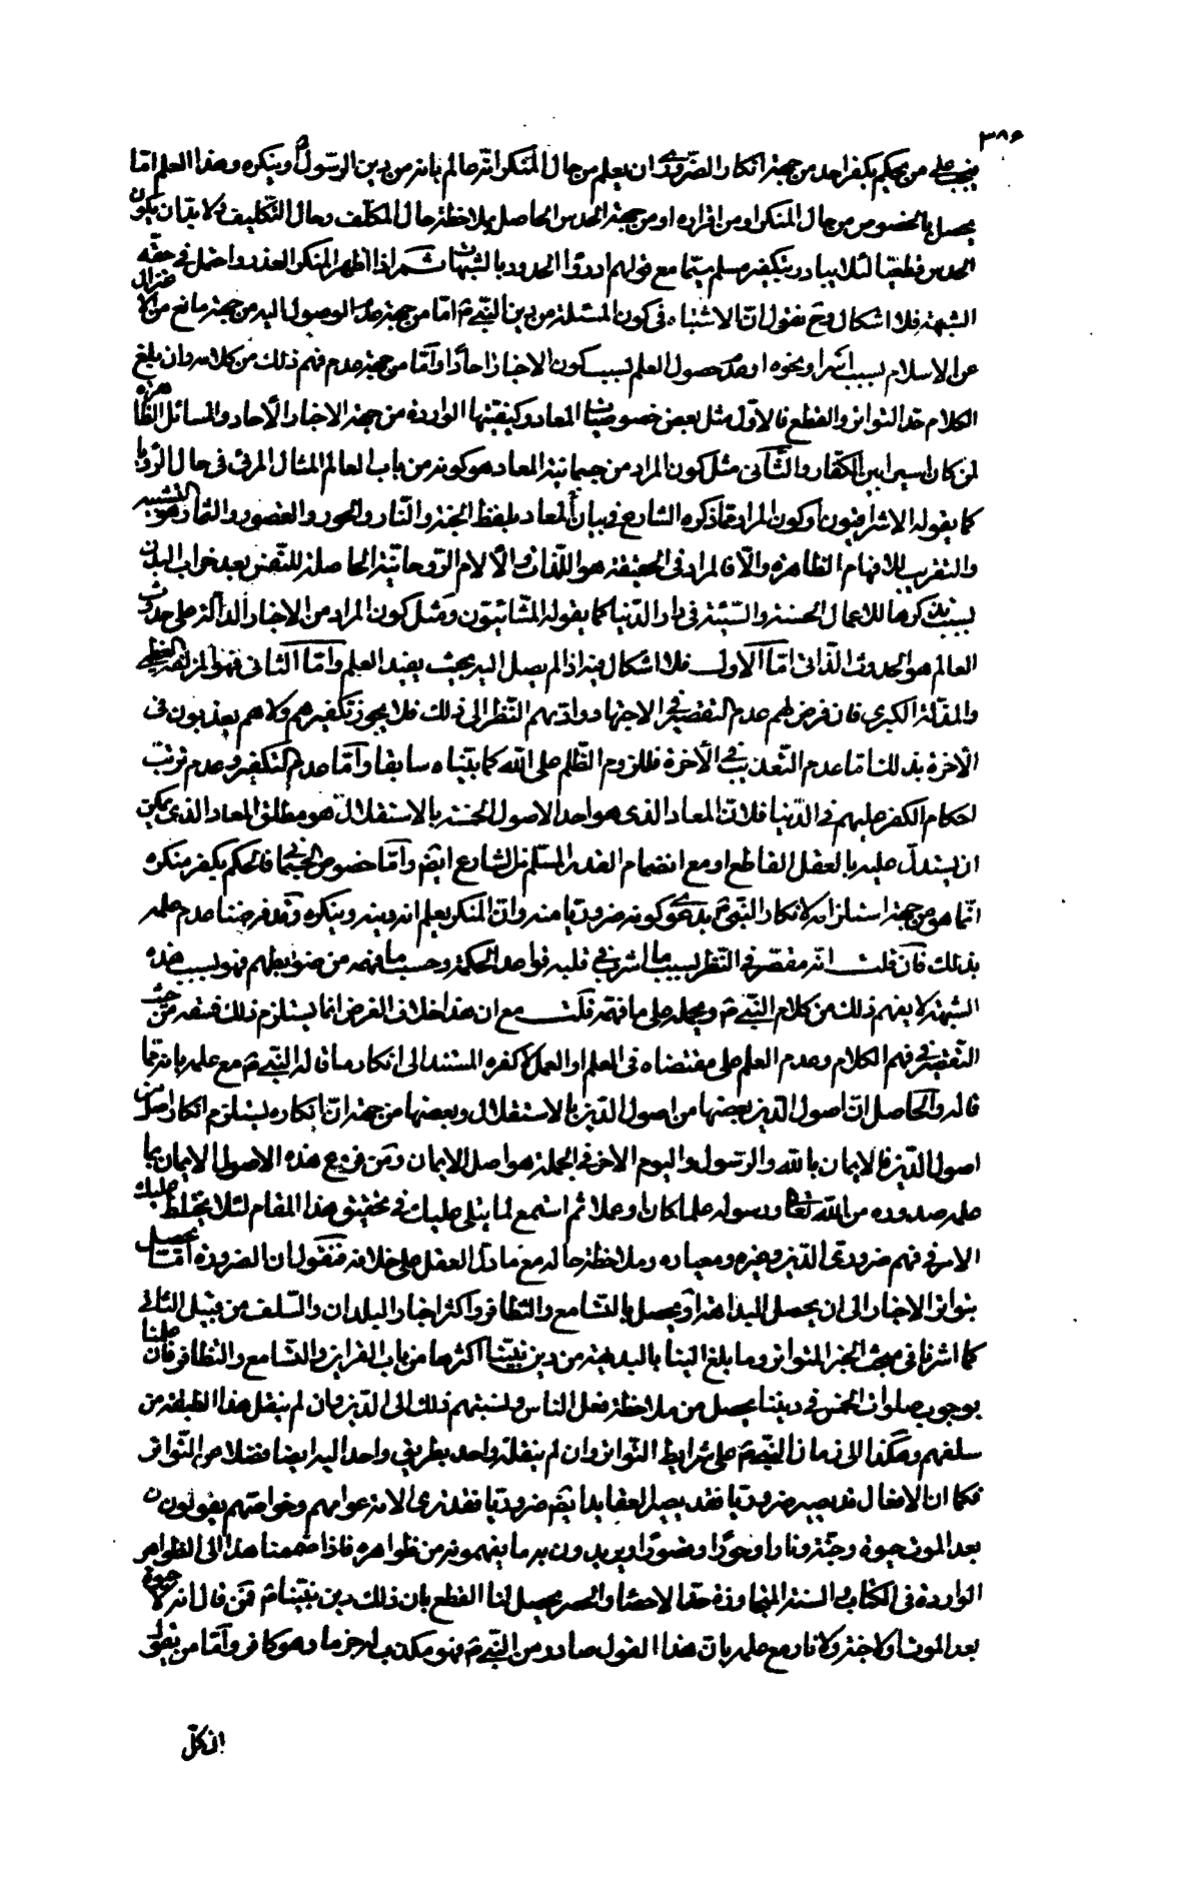 ٣٨۶
فيجب على من يحكم بكفر احد من جهة انكار الضّرورى ان يعلم من حال المنكر انّه عالم بانه من دين الرّسول ص او ينكره وهذا العلم امّا
يحصل بالخصوص من حال المنكر او من اقراره او من جهة الحدس الحاصل بملاحظة حال المكلّف وحال التّكليف ولا بدّ ان يكون
الحدس قطعيّا لئلا يبادر بتكفير مسلم سيّما مع قولهم ادرؤا الحدود بالشّبهات ثم اذا اظهر المنكر العذر واحتمل فى حقّه
الشبهة فلا اشكال وح نقول انّ الاشتباه فى كون المسئلة من دين النّبىّ ص امّا من جهة عدم الوصول اليه من جهة مانع من الا
عن الاسلام بسبب اسر او نحوه او عدم حصول العلم لسبب كون الاخبار احادا وامّا من جهة عدم فهم ذلك من كلامه وان بلغ
الكلام حدّ التواتر والقطع فالاوّل مثل بعض خصوصيّات المعاد وكيفيّتها الواردة من جهة الاخبار الآحاد والمسائل الظّاهرة
لمن كان اسيرا بين الكفّار والثّانى مثل كون المراد من جسمانية المعاد هو كونه من باب العالم المثال المرئى فى حال الرّؤيا
كما يقوله الاشراقيّون او كون المراد ممّا ذكره الشّارع فى بيان المعاد بلفظ الجنّة والنّار والحور والقصور والثمار هو التشبيه
والتقريب للافهام الظاهرة والّا فالمراد فى الحقيقة هو اللّذات والآلام الرّوحانيّة الحاصلة للنّفس بعد خراب البدن
بسبب تذكّرها للاعمال الحسنة والسّيّئة فى دار الدّنيا كما يقوله المشّائيّون ومثل كون المراد من الاخبار الدالّة على حدوث
العالم هو الحدوث الذّاتى امّا الاول فلا اشكال فيه اذا لم يصل اليه بحيث يفيد العلم وامّا الثانى فهو المزلقة العظمى
والمذلّة الكبرى فان فرض لهم عدم التقصير فى الاجتهاد وادّيهم النّظر الى ذلك فلا يجوز تكفيرهم ولا هم يعذبون فى
الآخرة بذلك امّا عدم التّعذيب فى الآخرة فللزوم الظّلم على اللّه كما بيّناه سابقا وامّا عدم التكفير وعدم ترتّب
احكام الكفر عليهم فى الدّنيا فلانّ المعاد الذى هو احد الاصول الخمسة بالاستقلال هو مطلق المعاد الذى يمكن
ان يستدلّ عليه بالعقل القاطع او مع انضمام القدر المسلّم من الشارع ايضا وامّا خصوص الجسمانى فالحكم بكفر منكره
انّما هو من جهة استلزامه لانكار النّبىّ ص بدعوى كونه ضروريّا منه وانّ المنكر يعلم انه دينه وينكره وقد فرضنا عدم علمه
بذلك فان قلت انّه مقصّر فى النّظر بسبب ما اشرب فى قلبه قواعد الحكمة وحسب ما فهمه من ضوابطهم فهو بسبب هذه
الشبهة لا يفهم ذلك من كلام النّبىّ ص ويحمله على ما فهمه قلت مع ان هذا خلاف الفرض انما يستلزم ذلك فسقه من حيث
التّقصير فى فهم الكلام وعدم العلم على مقتضاه فى العلم او العمل لا كفره المستند الى انكار ما قاله النّبىّ ص مع علمه بانه ممّا
قاله والحاصل انّ اصول الدّين بعضها من اصول الدّين بالاستقلال وبعضها من جهة انّ انكاره يستلزم انكار اصل من
اصول الدّين فالايمان باللّه والرّسول واليوم الاخر فى الجملة هو اصل الايمان ومن فروع هذه الاصول الايمان بما
علم صدوره من اللّه تعالى ورسوله علما كان او عملا ثم استمع لما يتلى عليك فى تحقيق هذا المقام لئلّا يختلط عليك
الامر فى فهم ضرورى الدّين وغيره ومعياره وملاحظة حاله مع ما دلّ العقل على خلافه فنقول ان الضرورة امّا يحصل
بتواتر الاخبار الى ان يحصل البداهة او يحصل بالتسامع والتظافر واكثر اخبار البلدان والسّلف من قبيل الثانى
كما اشرنا فى مبحث الخبر المتواتر وما بلغ الينا بالبديهة من دين نبيّنا اكثرها من باب القراين والتّسامع والتظافر فان علمنا
بوجوب صلوات الخمس فى ديننا يحصل من ملاحظة فعل الناس ونسبتهم ذلك الى الدّين وان لم ينقل هذا الطبقة من
سلفهم وهكذا الى زمان النّبىّ ص على شرايط التّواتر وان لم ينقله واحد بطريق واحد اليه ايضا فضلا عن التّواتر
فكما ان الافعال قد يصير ضروريّا فقد يصير العقايد ايضا ضروريّا فقد نرى الامة عوامهم وخواصّهم يقولون ان
بعد الموت حيوة وجنّة ونارا وحورا وقصورا ويريدون به ما يفهمونه من ظواهره فاذا ضممنا هذا الى الظواهر
الواردة فى الكتاب والسنة المتجاوزة حدّ الاحصاء والحصر يحصل لنا القطع بان ذلك دين نبيّنا ص فمن قال انه لا حيوة
بعد الموت او لا جنّة ولا نار مع علمه بانّ هذا القول صادر من النّبىّ ص فهو مكذب له جزما وهو كافر وامّا من يقول
انّ كلّ